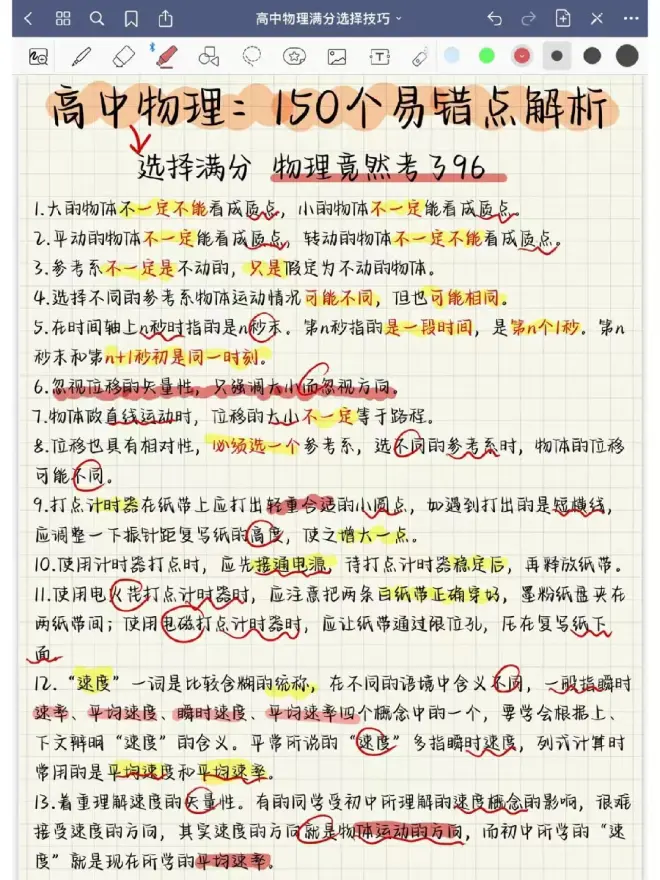 高中物理满分选择技巧
高中物理：150个易错点解析
选择满分 物理竟然考了96
1.大的物体不一定不能看成质点，小的物体不一定能看成质点。
2.平动的物体不一定能看成质点，转动的物体不一定不能看成质点。
3.参考系不一定是不动的，只是假定为不动的物体。
4.选择不同的参考系物体运动情况可能不同，但也可能相同。
5.在时间轴上n秒时指的是n秒末。第n秒指的是一段时间，是第n个1秒。第n
秒末和第n+1秒初是同一时刻。
6.忽视位移的矢量性，只强调大小而忽视方向。
7.物体做直线运动时，位移的大小不一定等于路程。
8.位移也具有相对性，必须选一个参考系，选不同的参考系时，物体的位移
可能不同。
9.打点计时器在纸带上应打出轻重合适的小圆点，如遇到打出的是短横线，
应调整一下振针距复写纸的高度，使之增大一点。
10.使用计时器打点时，应先接通电源，待打点计时器稳定后，再释放纸带。
11.使用电火花打点计时器时，应注意把两条白纸带正确穿好，墨粉纸盘夹在
两纸带间；使用电磁打点计时器时，应让纸带通过限位孔，压在复写纸下
面。
12.“速度”一词是比较含糊的统称，在不同的语境中含义不同，一般指瞬时
速率、平均速度、瞬时速度、平均速率四个概念中的一个，要学会根据上、
下文辨明“速度”的含义。平常所说的“速度”多指瞬时速度，列式计算时
常用的是平均速度和平均速率。
13.着重理解速度的矢量性。有的同学受初中所理解的速度概念的影响，很难
接受速度的方向，其实速度的方向就是物体运动的方向，而初中所学的“速
度”就是现在所学的平均速率。